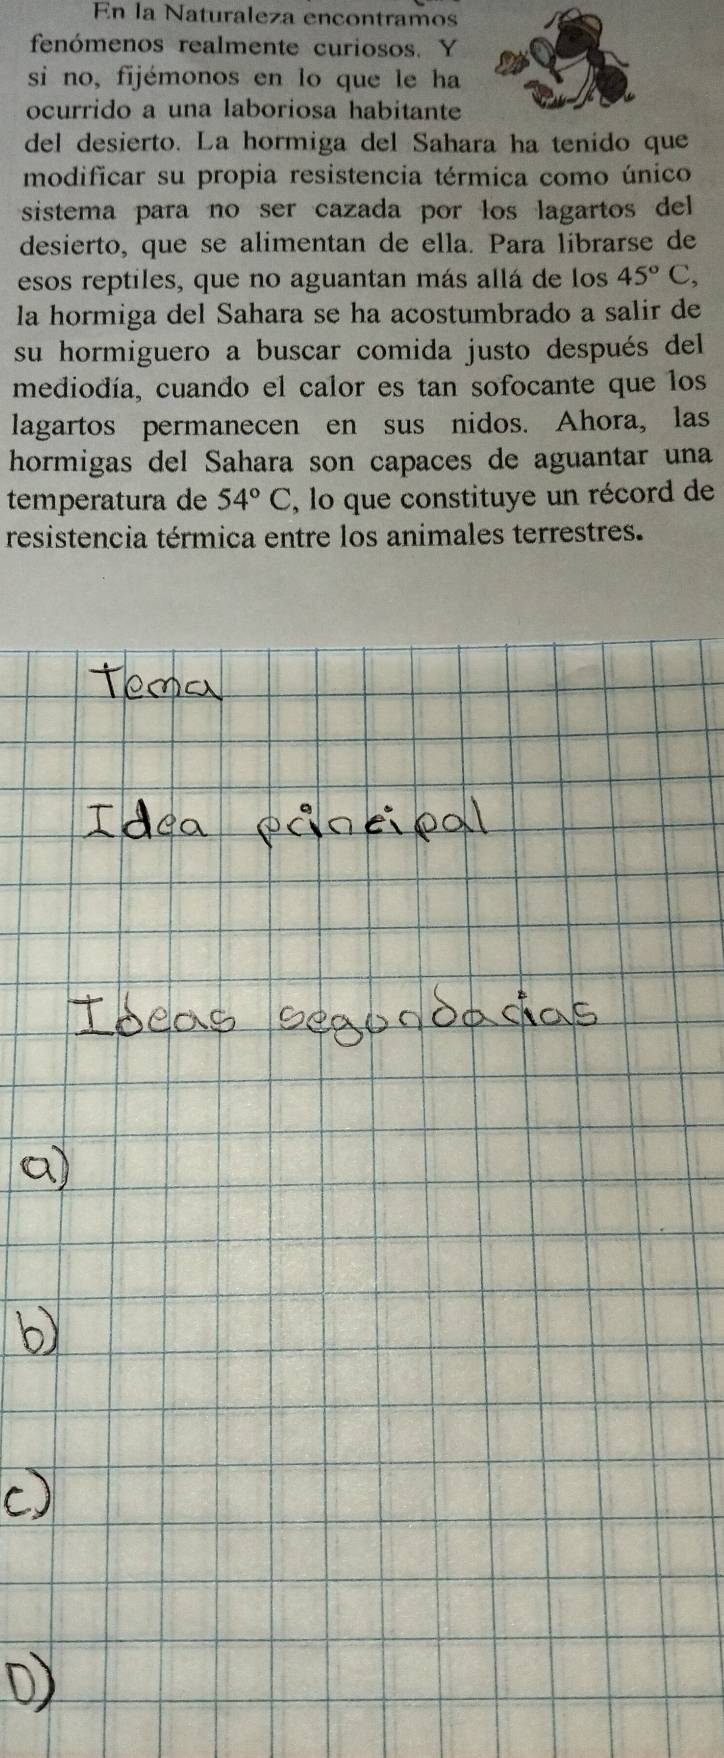 En la Naturaleza encontramos
fenómenos realmente curiosos. Y
si no, fijémonos en lo que le ha
ocurrido a una laboriosa habitante
del desierto. La hormiga del Sahara ha tenido que
modificar su propia resistencia térmica como único
sistema para no ser cazada por los lagartos del
desierto, que se alimentan de ella. Para librarse de
esos reptiles, que no aguantan más allá de los 45º C,
la hormiga del Sahara se ha acostumbrado a salir de
su hormiguero a buscar comida justo después del
mediodía, cuando el calor es tan sofocante que los
lagartos permanecen en sus nidos. Ahora, las
hormigas del Sahara son capaces de aguantar una
temperatura de 54º C, lo que constituye un récord de
resistencia térmica entre los animales terrestres.
Tema
Idea principal
Ideas segundarias
a)
b)
c)
D)